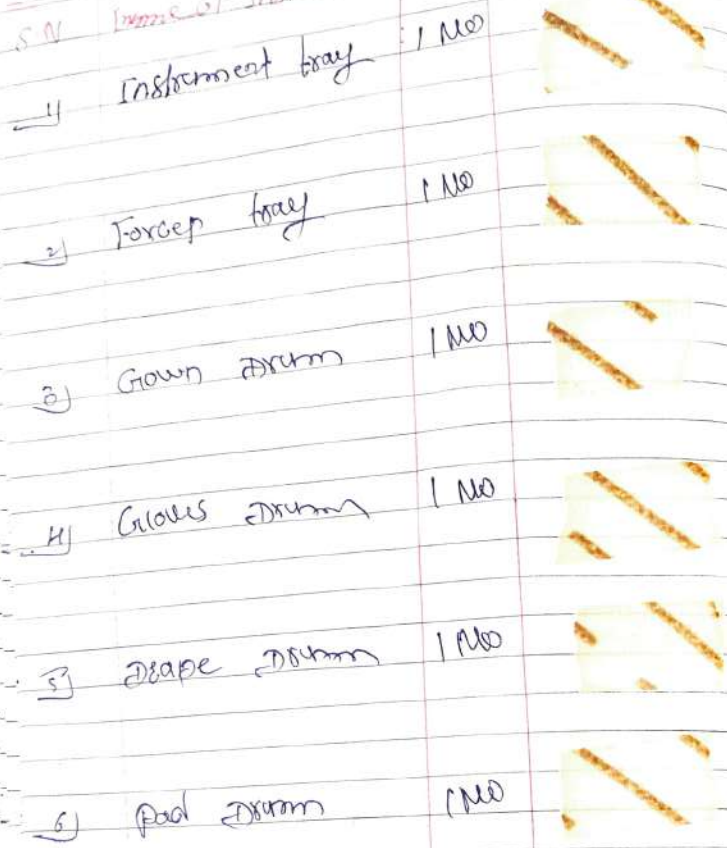 S.N Name of
1) Instrument tray 1 No
2) Forcep tray 1 No
3) Gown Drum 1 No
4) Gloves Drum 1 No
5) Drape Drum 1 No
6) Pad Drum 1 No